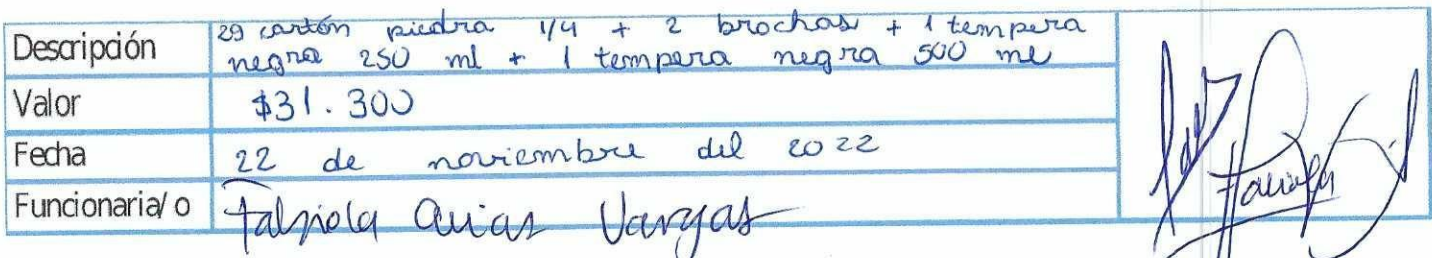 Descripción 29 cartón piedra 1/4 + 2 brochas + 1 tempera
negra 250 ml + 1 tempera negra 500 ml
Valor $31.300
Fecha 22 de noviembre del 2022
Funcionaria/o Fabiola Arias Vargas